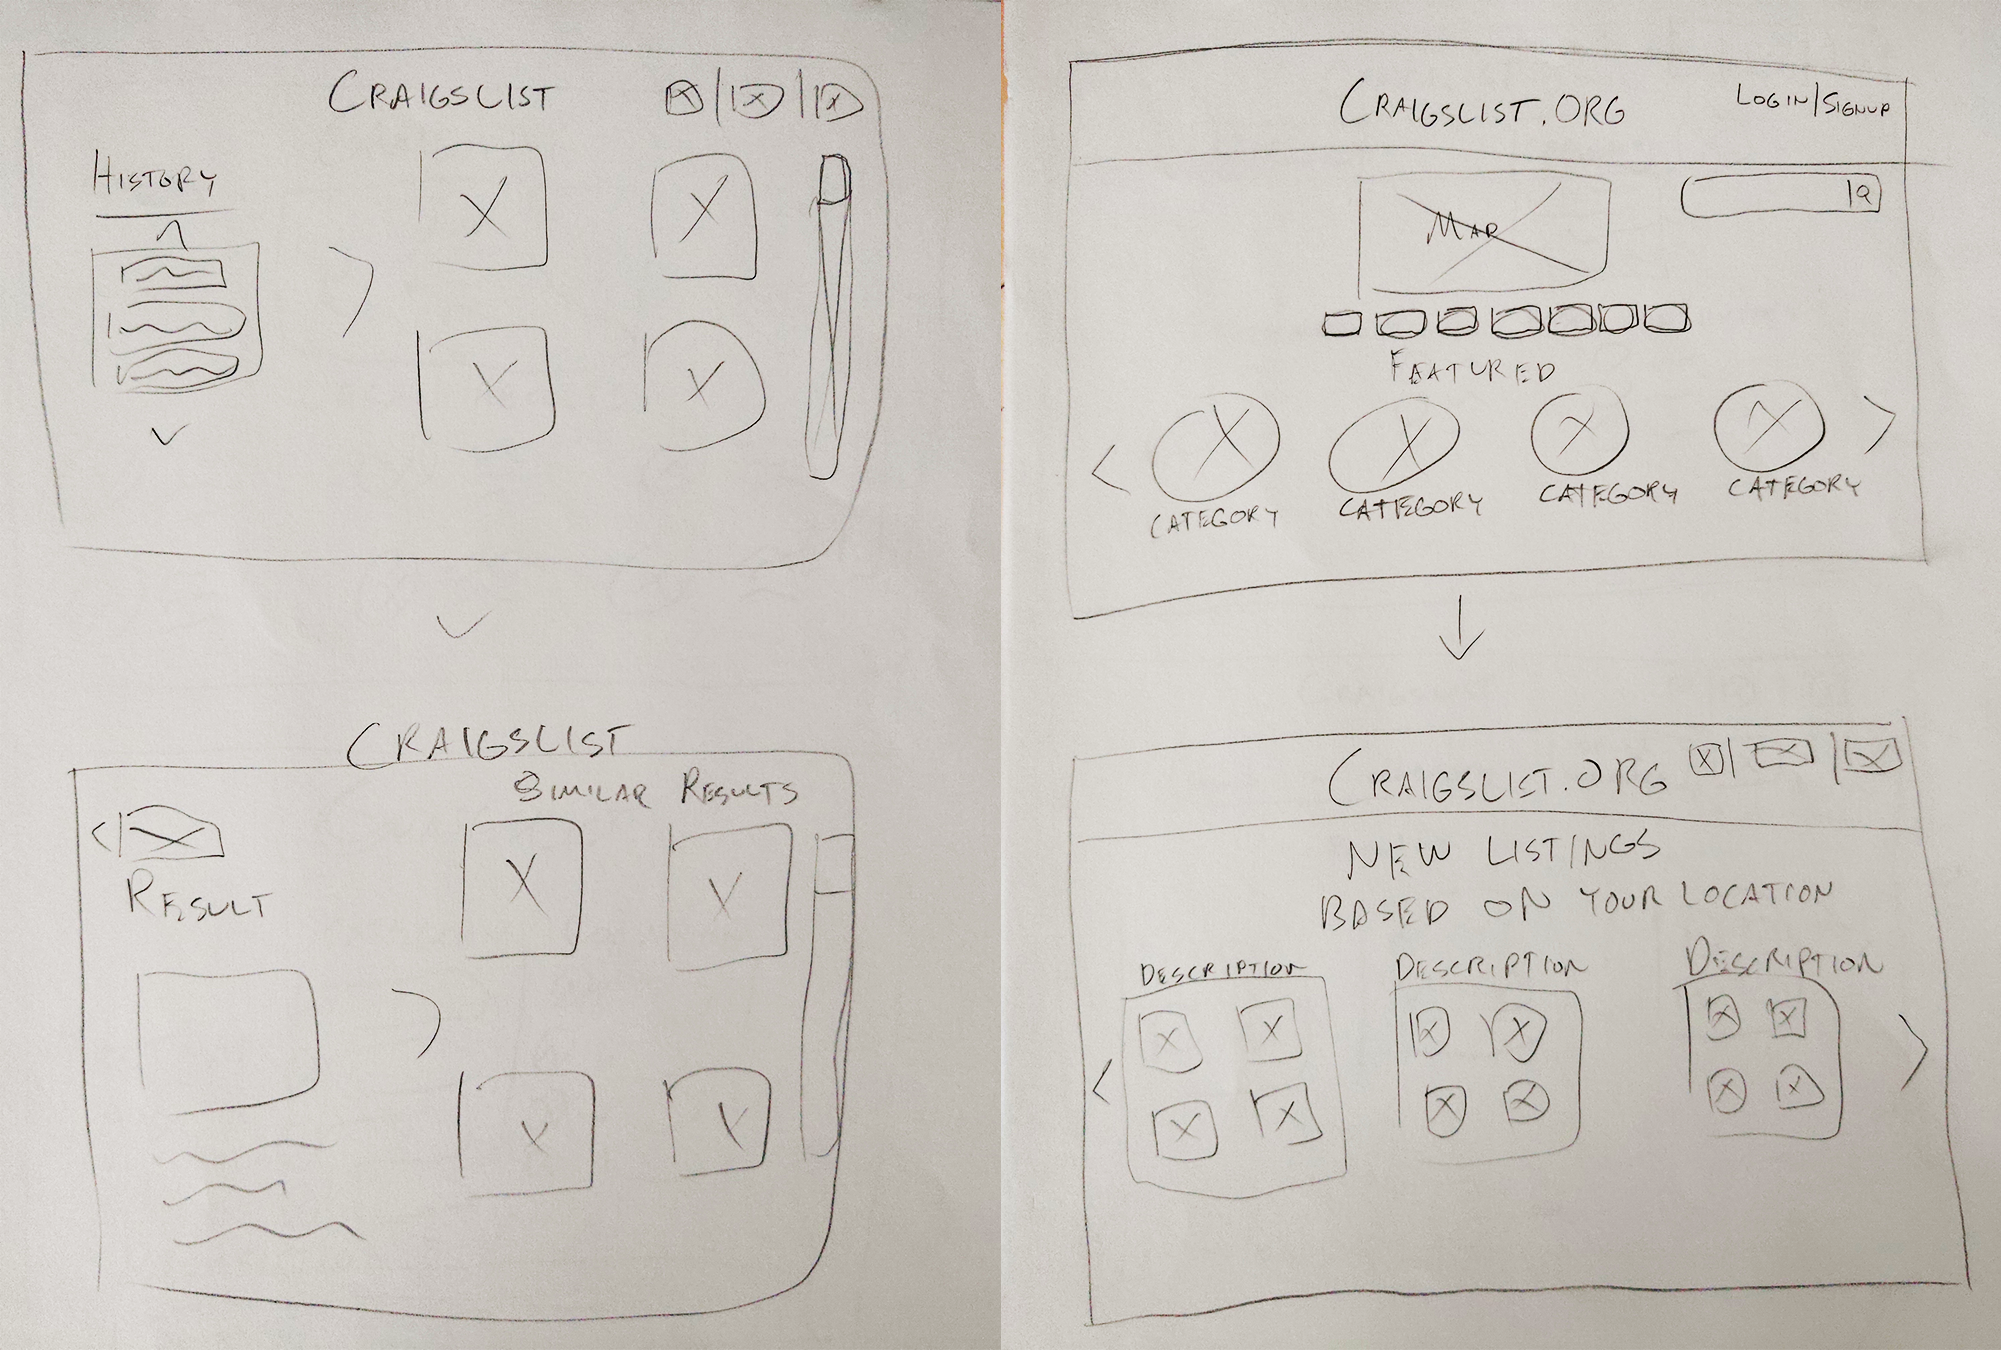 CRAIGSLIST
HISTORY
CRAIGSLIST
SIMILAR RESULTS
RESULT
CRAIGSLIST.ORG
LOGIN/SIGNUP
MAP
FEATURED
CATEGORY
CATEGORY
CATEGORY
CATEGORY
CRAIGSLIST.ORG
NEW LISTINGS
BASED ON YOUR LOCATION
DESCRIPTION
DESCRIPTION
DESCRIPTION